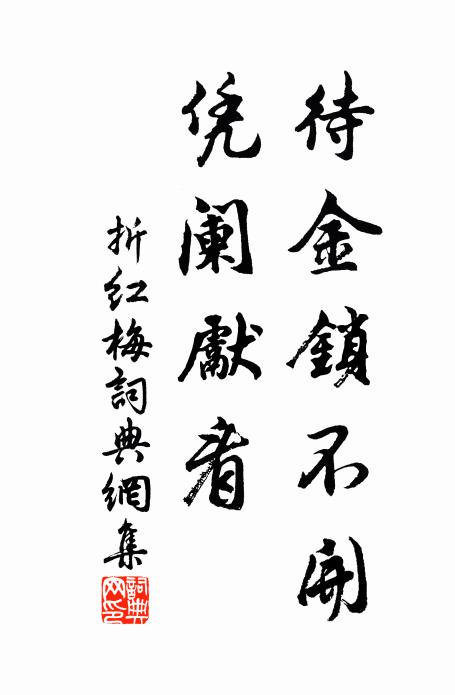 待金鎖不開
凭阑獻看
折红梅詞典網集
詞典网印